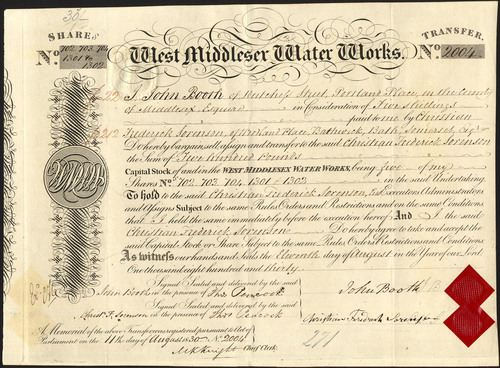 35
SHARES
No. 702. 703. 704.
1301 to
1302
West Middlesex Water Works.
TRANSFER.
No. 2004
I, John Booth of Street, Portland Place, in the County
of Middlesex Esquire in Consideration of Five shillings
paid to me by Christian
Frederick Sorenson of Place, Bathwick, Bath, Somerset, Esqr.
Do hereby bargain, sell, assign and transfer to the said Christian Frederick Sorenson
the Sum of Five Hundred Pounds
Capital Stock of and in the WEST MIDDLESEX WATER WORKS, being five of my
Shares No. 702. 703. 704. 1301 - 1302 in the said Undertaking
To hold to the said Christian Frederick Sorenson, his Executors Administrators
and Assigns Subject to the same Rules Orders and Restrictions and on the same Conditions
that I held the same immediately before the execution hereof And I the said
Christian Frederick Sorenson Do hereby agree to take and accept the
said Capital Stock or Share Subject to the same Rules Orders Restrictions and Conditions.
As witness our hands and Seals the Eleventh day of August in the Year of our Lord
One thousand eight hundred and thirty.
Signed Sealed and delivered by the said
John Booth in the presence of Thos Peacock
John Booth
Signed Sealed and delivered by the said
Christ. F. Sorenson in the presence of Thos Peacock
Christian Fredrick Sorenson
A Memorial of the above Transfer was registered pursuant to Act of
Parliament on the 11th day of August 1830 No. 2004
M K Knight Chief Clerk.